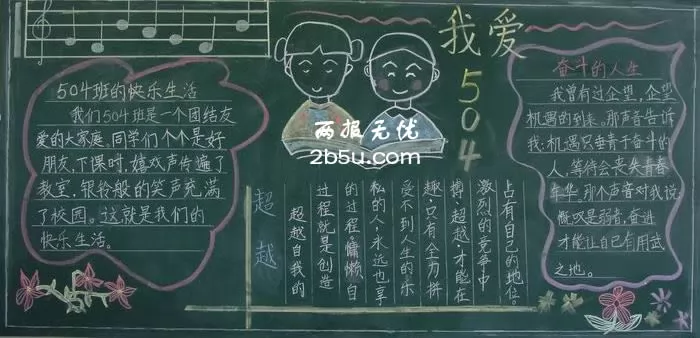 我爱504
504班的快乐生活
我们504班是一个团结友
爱的大家庭。同学们个个是好
朋友,下课时,嬉戏声传遍了
教室,银铃般的笑声充满
了校园。这就是我们的
快乐生活。
两报无忧
2b5u.com
超越
超越自我的
过程就是创造
的过程。慵懒自
私的人,永远也享
受不到人生的乐
趣,只有全力拼
搏,超越,才能在
激烈的竞争中
占有自己的地位。
奋斗的人生
我曾有过企望,企望
机遇的到来。那声音告诉
我:机遇只垂青于奋斗的
人,等待会丧失青春
年华。那个声音对我说:
慨叹是弱者,奋进
才能让自己有用武
之地。